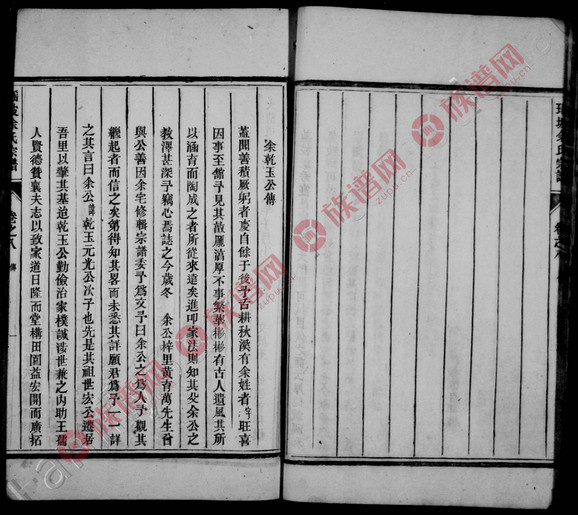 余乾玉公傳
蓋聞善積厥躬者慶自餘于後予舌耕秋漢有余姓者字旺喜
因事至館予見其敦龎渾厚不事繁華彬彬有古人遺風其所
以涵育而陶成之者所從來遠矣進叩家法則知其父余公之
教澤甚深予竊心焉誌之今歲冬　余公梓里黄育萬先生曾
與公善因余宅修輯宗譜委予為文予曰余公之為人予觀其
繼起者而信之矣第得知其畧而未悉其詳願君為予一一詳
之其言曰余公諱乾玉元光公次子也先是其祖世宏公遷居
吾里以肇其基迨乾玉公勤儉治家樸誠涉世兼之内助王孺
人賢德贊襄夫志以致家道日隆而堂構田園益宏開而廣拓
余氏宗譜
卷之八
傳
一
族谱网
zupu.cn
族谱网
zupu.cn
族谱网
zupu.cn